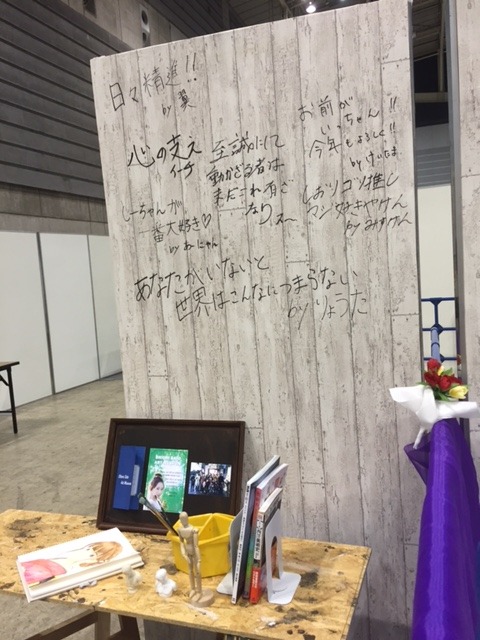 日々精進!!
by 翼
心の支え
イーチ
至誠にして
動かざる者は
未だこれ有ざ
なり
お前が
いっちゃん!!
今年もよろしく!!
by けいたま
しーちゃんが
一番大好き♡
by ねーにゃん
しおりコツコツ推し
マン好きやけん
by みずけん
あなたがいないと
世界はこんなにつまらない
by りょうた